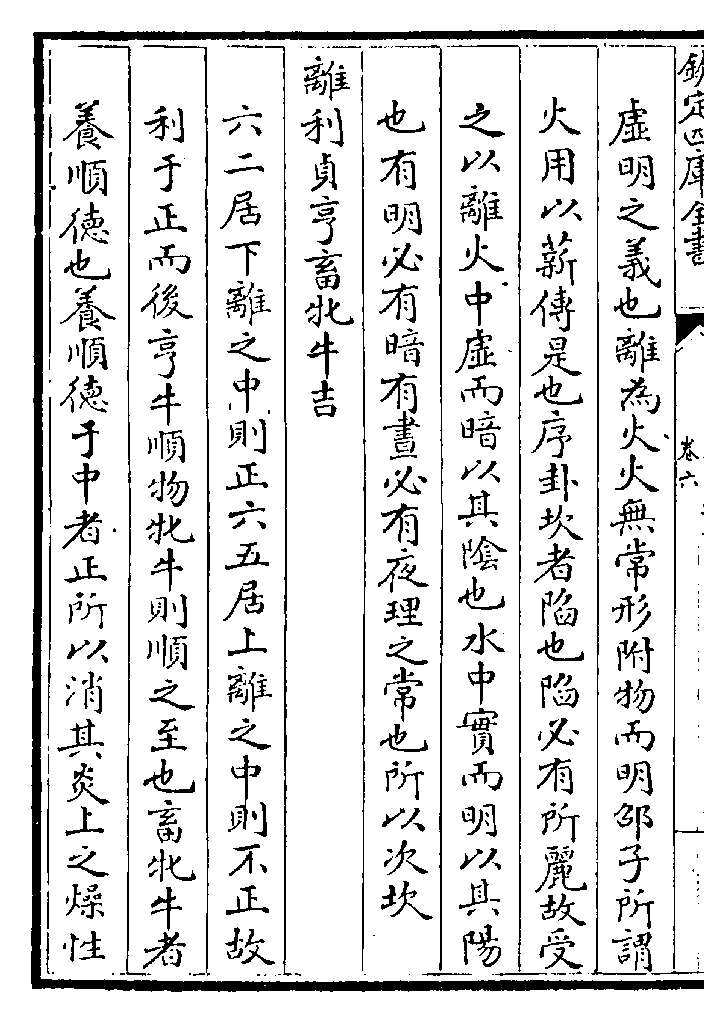 欽定四庫全書
卷六
虛明之義也離為火火無常形附物而明邵子所謂
火用以薪傳是也序卦坎者陷也陷必有所麗故受
之以離火中虛而暗以其陰也水中實而明以其陽
也有明必有暗有晝必有夜理之常也所以次坎
離利貞亨畜牝牛吉
六二居下離之中則正六五居上離之中則不正故
利于正而後亨牛順物牝牛則順之至也畜牝牛者
養順德也養順德于中者正所以消其炎上之燥性